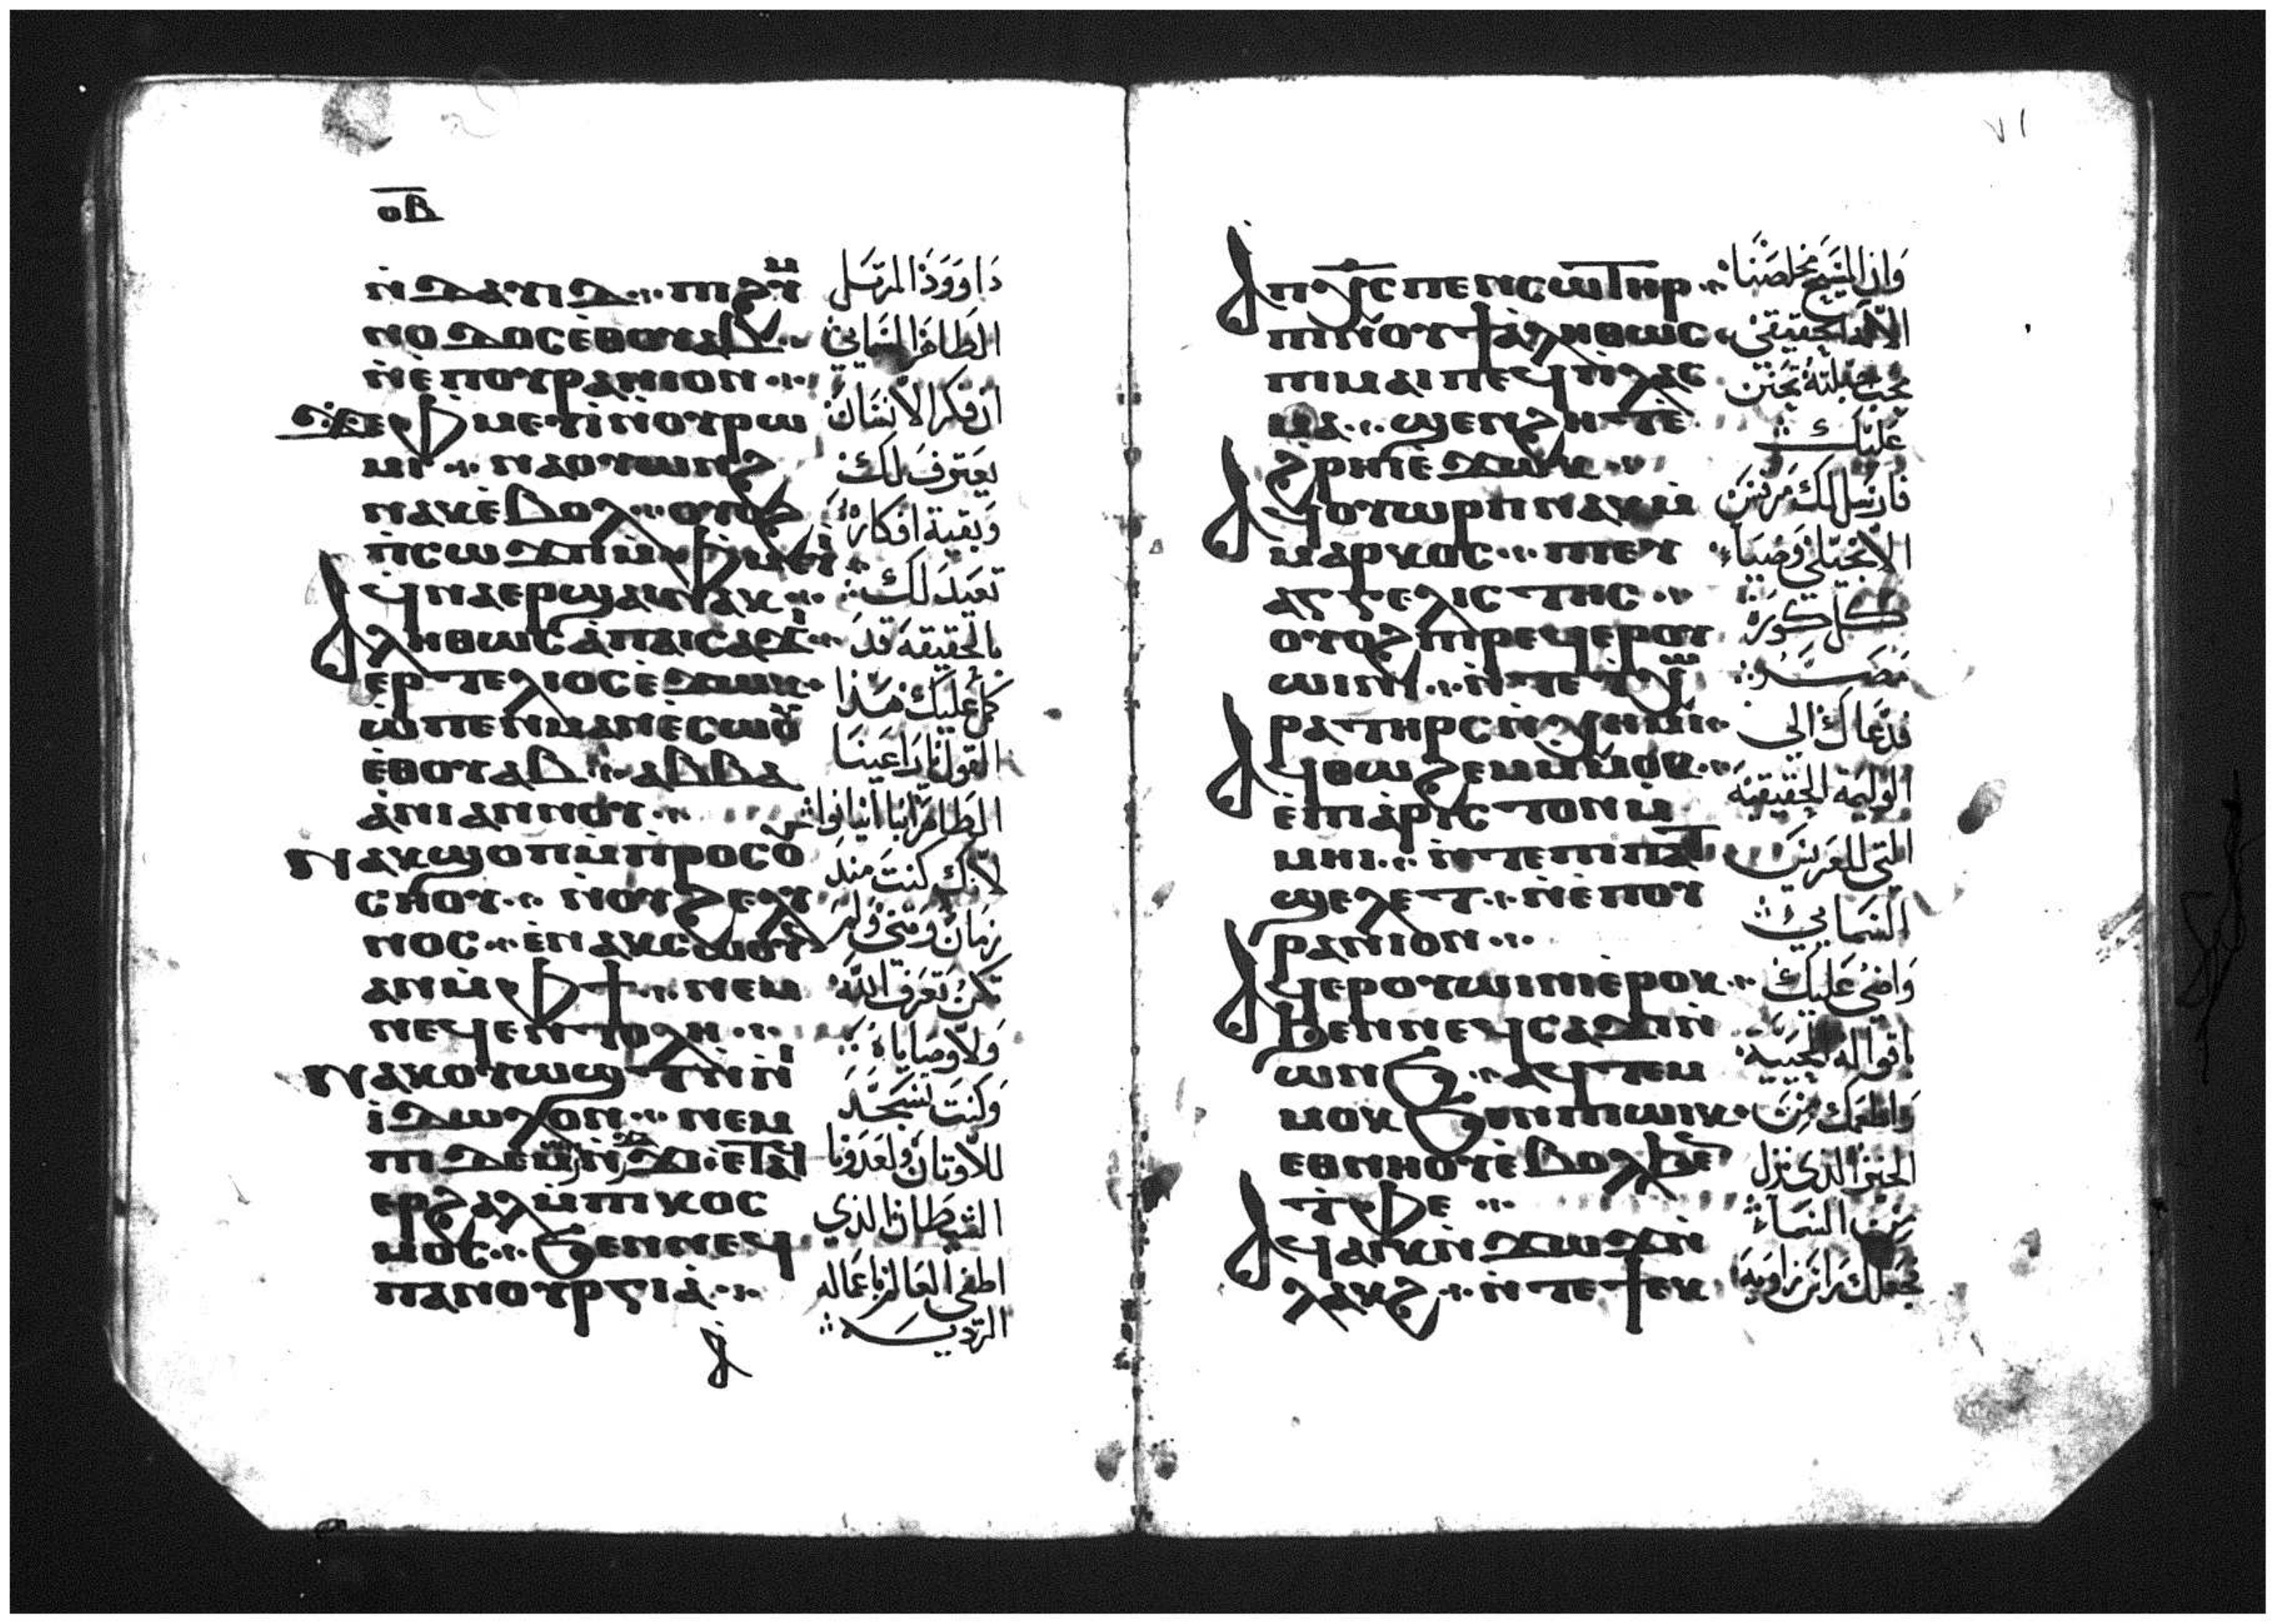 ⲟⲃ
ⲛ̀ⲇⲁⲩⲓⲇ ⲡⲓϩⲩⲙ
ⲛⲟⲇⲟⲥ ⲉⲑⲟⲩⲁⲃ
ⲛ̀ⲉ̀ⲡⲟⲩⲣⲁⲛⲓⲟⲛ
ϫⲉ ⲫⲙⲉⲩⲓ ⲛ̀ⲟⲩⲣⲱ
ⲙⲓ ⲛⲁⲟⲩⲱⲛϩ
ⲛⲁⲕ ⲉ̀ⲃⲟⲗ ⲟⲩⲟϩ
ⲡ̀ⲥⲱϫⲡ ⲙ̀ⲫⲙⲉⲩⲓ
ϥⲛⲁⲉⲣϣⲁⲓ ⲛⲁⲕ
ⲁⲗⲏⲑⲱⲥ ⲁ̀ ⲡⲁⲓⲥⲁϫⲓ
ⲉⲣⲧⲉⲗⲓⲟⲥ ⲉ̀ϫⲱⲕ
ⲱ̀ ⲡⲉⲛⲙⲁⲛⲉ̀ⲥⲱⲟⲩ
ⲉ̀ⲑⲟⲩⲁⲃ ⲁⲃⲃⲁ
ⲁ̀ⲛⲓⲁⲛⲛⲟⲩ
ⲛⲁⲕϣⲟⲡ ⲙ̀ⲡ̀ⲣⲟⲥⲟⲩ
ⲥⲛⲟⲩ ⲛ̀ⲟⲩϩⲉⲗⲗⲩ
ⲛⲟⲥ ⲉ̀ⲛⲁⲕⲥⲱⲟⲩⲛ
ⲁⲛ ⲙ̀ⲫϯ ⲛⲉⲙ
ⲛⲉϥⲉⲛⲧⲟⲗⲏ
ⲛⲁⲕⲟⲩⲱϣⲧ ⲛ̀ⲛⲓ
ⲓ̀ⲇⲱⲗⲟⲛ ⲛⲉⲙ
ⲡⲓⲇⲉⲙⲱⲛ
ⲉⲣϩⲁⲗ ⲙ̀ⲡⲓⲕⲟⲥ
ⲙⲟⲥ ϧⲉⲛ ⲛⲉϥ
ⲡⲁⲛⲟⲩⲣⲅⲓⲁ
ⲁ
داوود المرتل
الطاهر السمايي
ان فكر الانسان
يعترف لك
وبقية افكاره
تعيد لك
بالحقيقة قد
كمل عليك هذا
القول يا راعينا
الطاهر انبا انيانوا
لانك كنت منذ
زمان وثني ولم
تكن تعرف الله
ولا وصاياه
وكنت تسجد
للاوثان ولعدونا
الشيطان الذي
اطغى العالم باعماله
الرديه
٧١
ⲁ ⲡⲭⲥ ⲡⲉⲛⲥⲱⲧⲏⲣ
ⲡⲓⲛⲟⲩϯ ⲁ̀ⲗⲏⲑⲱⲥ
ⲡⲓⲙⲁⲓ ⲡⲉϥⲡ̀ⲗⲁⲥ
ⲙⲁ ϣⲉⲛϩⲏⲧ ⲉ̀
ϩⲣⲏⲓ ⲉ̀ϫⲱⲕ
ⲁϥⲟⲩⲱⲣⲡ ⲛⲁⲕ ⲙ̀
ⲙⲁⲣⲕⲟⲥ ⲡⲓⲉⲩ
ⲁⲅⲅⲉⲗⲓⲥⲧⲏⲥ
ⲟⲩⲟϩ ⲡⲓⲣⲉϥⲉⲣⲟⲩ
ⲱⲓⲛⲓ ⲛ̀ⲧⲉ ϯⲭⲱ
ⲣⲁ ⲧⲏⲣⲥ ⲛ̀ⲭⲏⲙⲓ
ⲁϥⲑⲱϩⲉⲙ ⲙ̀ⲙⲟⲕ
ⲉ̀ⲡⲓⲁ̀ⲣⲓⲥⲧⲟⲛ ⲙ̀
ⲙⲏⲓ ⲛ̀ⲧⲉ ⲡⲓⲡⲁⲧ
ϣⲉⲗⲉⲧ ⲛ̀ⲉ̀ⲡⲟⲩ
ⲣⲁⲛⲓⲟⲛ
ⲁϥⲉⲣⲟⲩⲱⲓⲛⲓ ⲉ̀ⲣⲟⲕ
ϧⲉⲛ ⲛⲉϥⲥⲁϫⲓ ⲛ̀
ⲱⲛϧ ⲁϥⲧⲉⲙ
ⲙⲟⲕ ϧⲉⲛ ⲡⲓⲱⲓⲕ
ⲉⲑⲛⲏⲟⲩ ⲉ̀ⲃⲟⲗ ϧⲉⲛ
ⲧ̀ⲫⲉ
ⲁϥⲁⲓⲕ ⲛ̀ϫⲱϫ ⲛ̀
ⲗⲁⲕϩ ⲛ̀ⲧⲉ ϯⲉⲕ
وان المسيح مخلصنا
الاله الحقيقي
محب جبلته تحنن
عليك
فارسل لك مرقس
الانجيلي وضياء
كل كورة
مصر
فدعاك الى
الوليمة الحقيقية
التي للعريس
السمايي
واضى عليك
باقواله المحيية
واطعمك من
الخبز الذي نزل
من السماء
جعلك راس زاوية